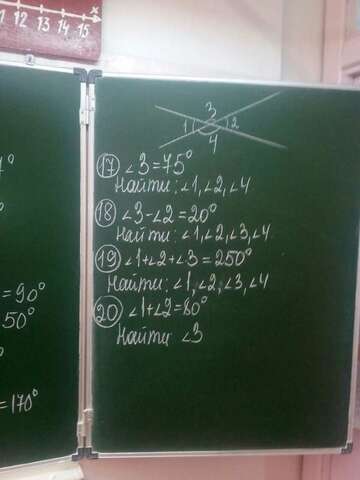 12 13 14 15 x
3
1 2
4
⑰ ∠3=75°
Найти: ∠1,∠2,∠4
⑱ ∠3-∠2=20°
Найти: ∠1,∠2,∠3,∠4
⑲ ∠1+∠2+∠3=250°
Найти: ∠1,∠2,∠3,∠4
⑳ ∠1+∠2=80°
Найти ∠3
=90°
50°
=170°